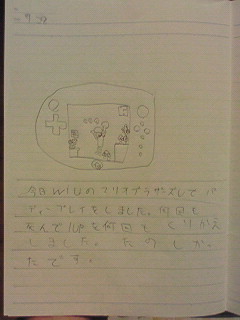 今日WiiUのマリオブラザズしてパ
ティープレイをしました。何回も
しんで1UPを何回も くりかえ
しました。たのしか
たです。